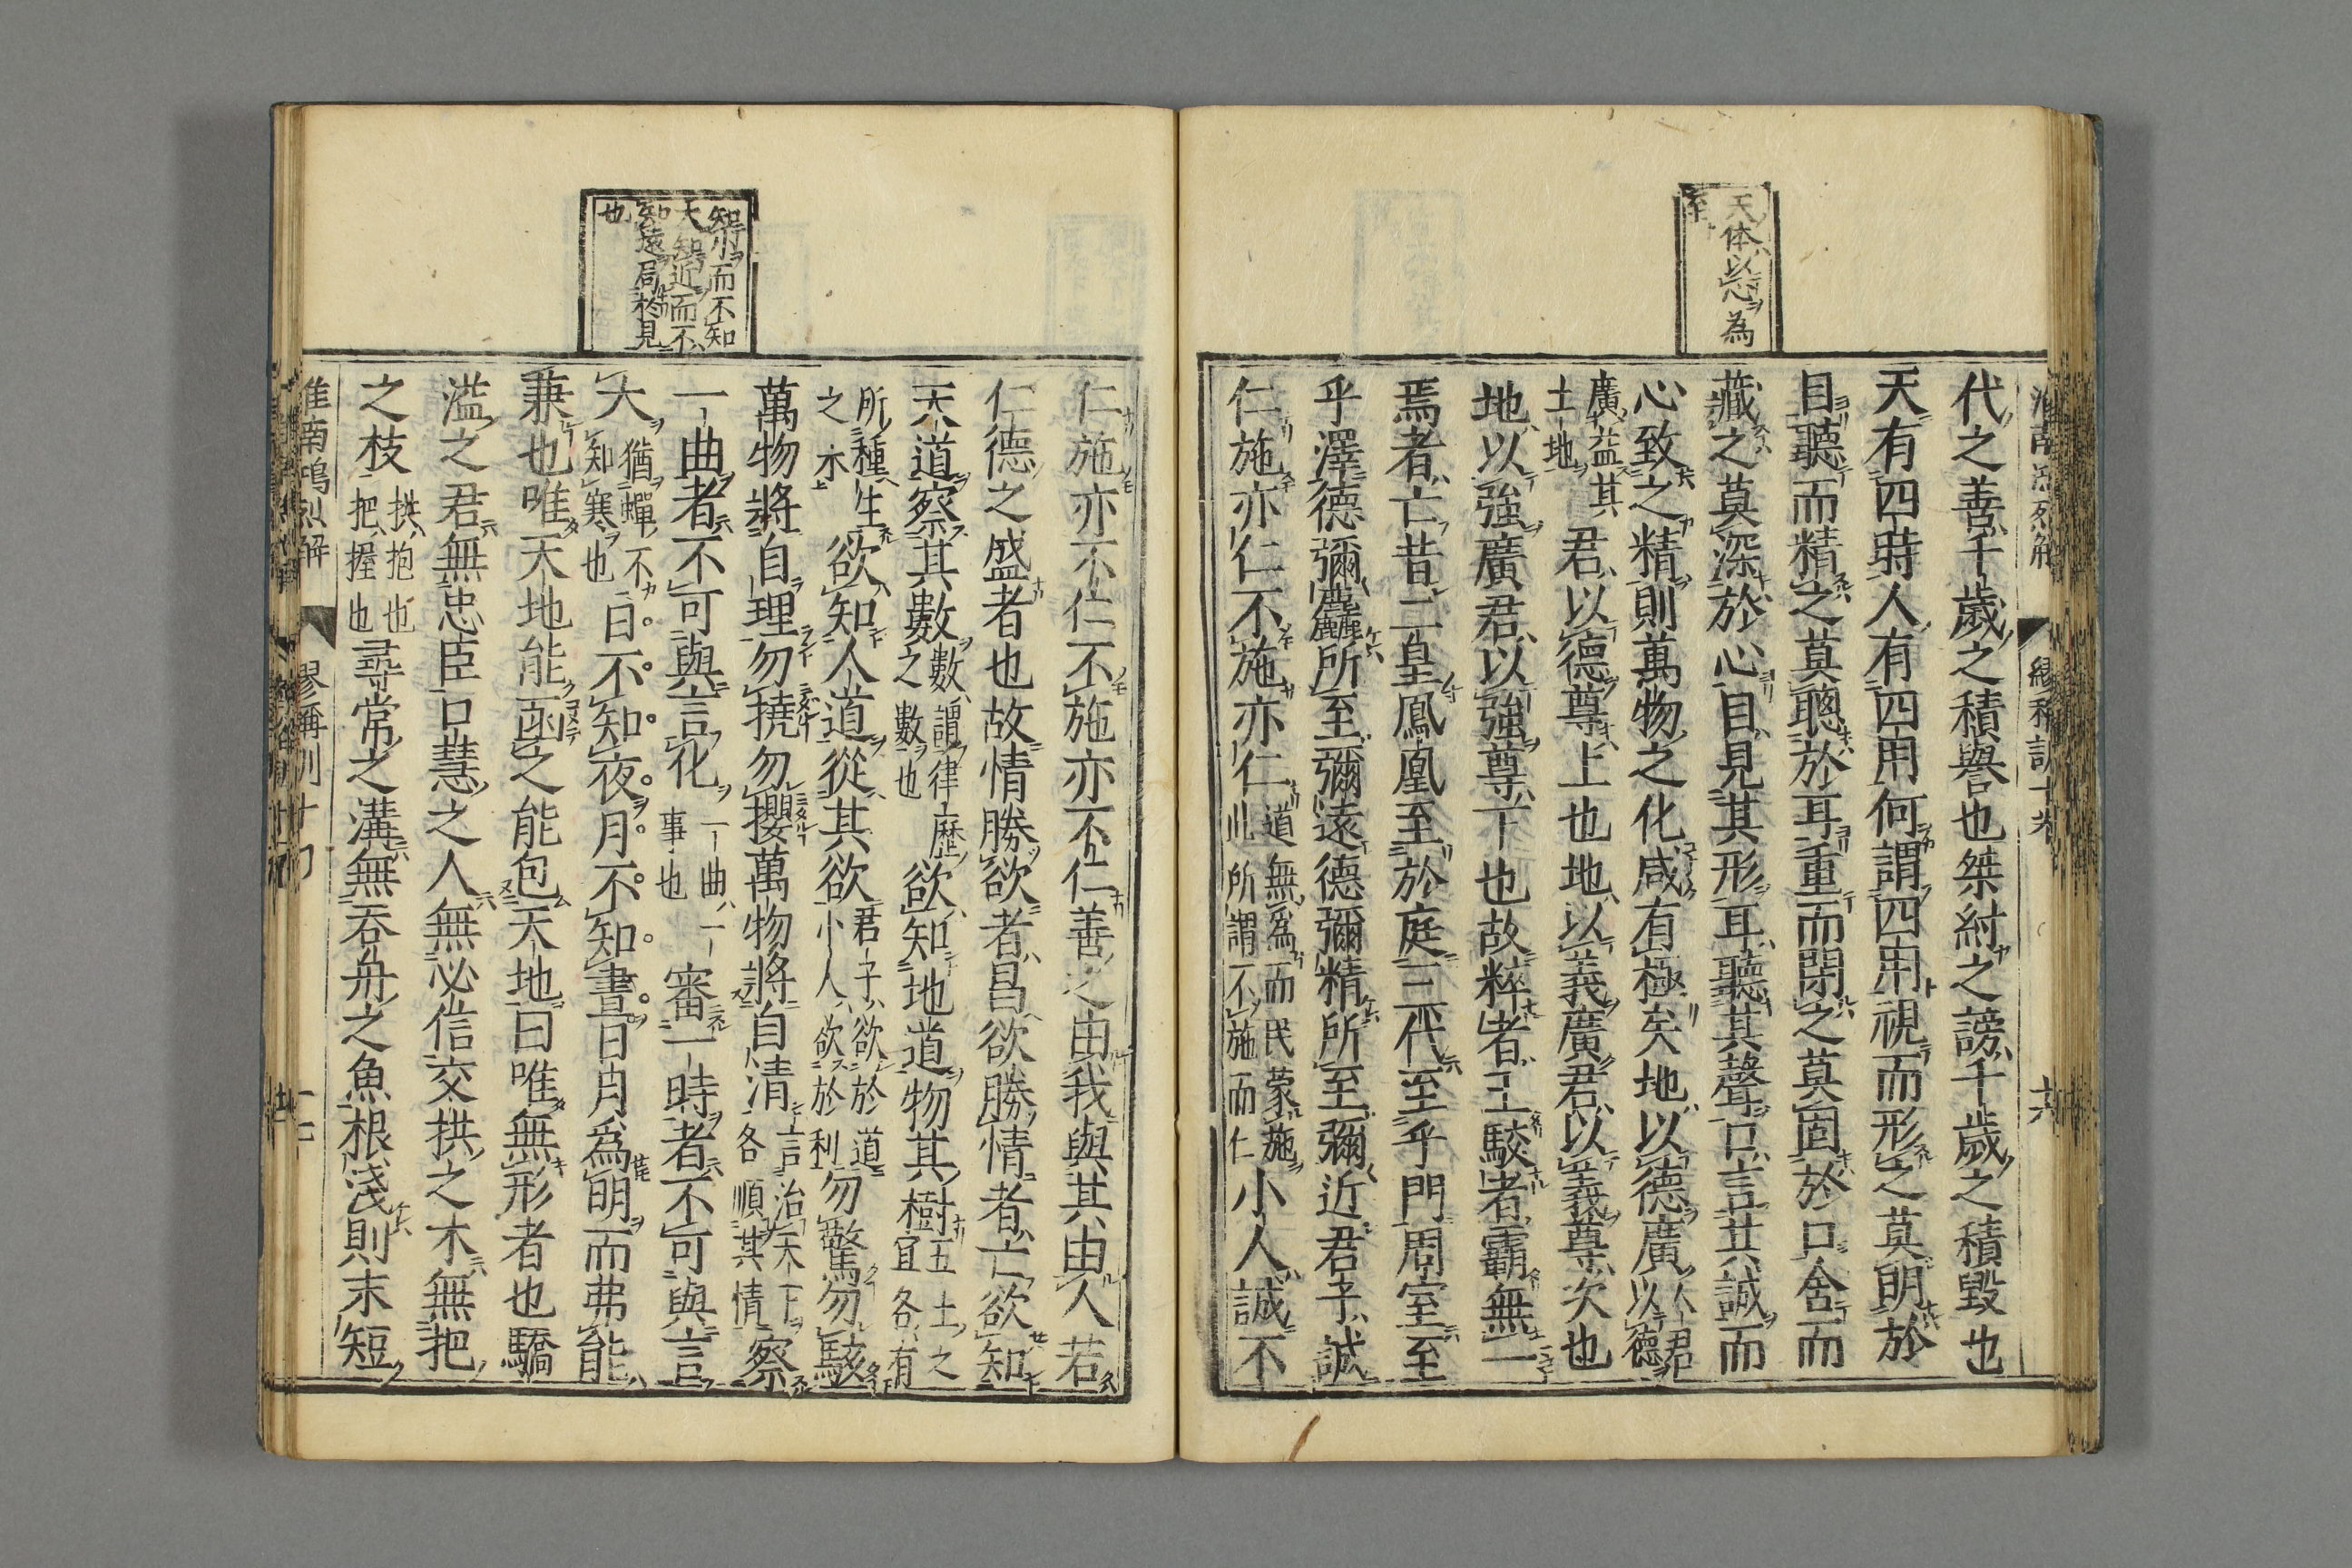 天体以心為
至
代之善千歲之積譽也桀紂之謗千歲之積毀也
天有四時人有四用何謂四用視而形之莫明於
目聽而精之莫聰於耳重而閉之莫固於口舍而
藏之莫深於心目見其形耳聽其聲口言其誠而
心致之精則萬物之化咸有極矣地以德廣人君以德
廣益其土地君以德尊上也地以義廣君以義尊次也
地以強廣君以強尊下也故粹者王駮者霸無一
焉者亡昔二皇鳳凰至於庭三代至乎門周室至
乎澤德彌麤所至彌遠德彌精所至彌近君子誠
仁施亦仁不施亦仁道無為而民蒙施此所謂不施而仁小人誠不
仁施亦不仁不施亦不仁善之由我與其由人若
仁德之盛者也故情勝欲者昌欲勝情者亡欲知
天道察其數數謂律歷之數也欲知地道物其樹五土之宜各有
所種生之木欲知人道從其欲君子欲於道小人欲於利勿驚勿駭
萬物將自理勿撓勿攖萬物將自清言治天下各順其情察
一曲者不可與言化一曲一事也審一時者不可與言
大猶蟬不知寒也日不知夜月不知晝日月為明而弗能
兼也唯天地能函之能包天地曰唯無形者也驕
溢之君無忠臣口慧之人無必信交拱之木無把
之枝拱抱也把握也尋常之溝無吞舟之魚根淺則末短
知小而不知
大知近而不
知遠局於見
也
淮南鴻烈解
繆稱訓十